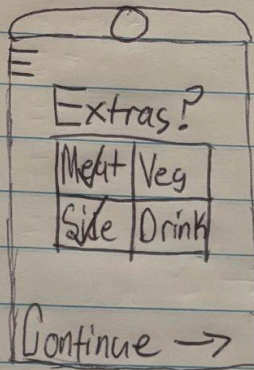 Extras?
Meat Veg
Side Drink
Continue →